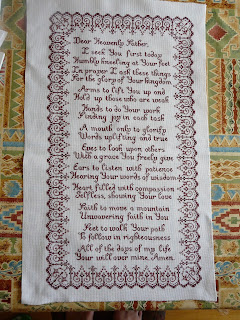 Dear Heavenly Father,
I seek You first today
Humbly kneeling at Your feet
In prayer I ask these things
For the glory of Your kingdom
Arms to lift You up and
Hold up those who are weak
Hands to do Your work
Finding joy in each task
A mouth only to glorify
Words uplifting and true
Eyes to look upon others
With a grace You freely give
Ears to listen with patience
Hearing Your words of wisdom
Heart filled with compassion
Selfless, showing Your Love
Faith to move a mountain
Unwavering faith in You
Feet to walk Your path
To follow in righteousness
All of the days of my life
Your will over mine. Amen.